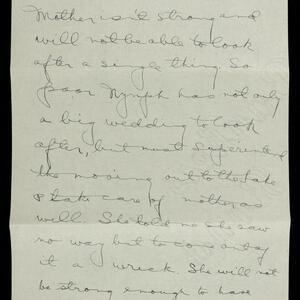 Mother isn't strong and
will not be able to look
after a single thing. So
poor Nymph has not only
a big wedding to look
after, but must superintend
the moving out to the Lake
& take care of mother as
well. She told me she saw
no way but to come out of
it a wreck. She will not
be strong enough to have